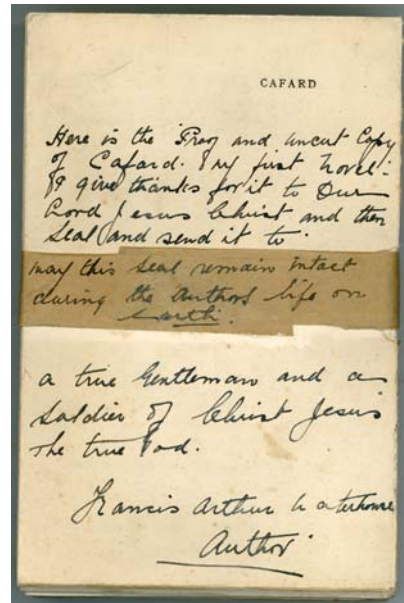 CAFARD
Here is the Proof and uncut Copy
of Cafard. My first Novel.
I give thanks for it to Our
Lord Jesus Christ and then
Seal and send it to
may this seal remain intact
during the Authors life on
Earth.
a true Gentleman and a
Soldier of Christ Jesus
the true God.
Francis Arthur Waterhouse
Author